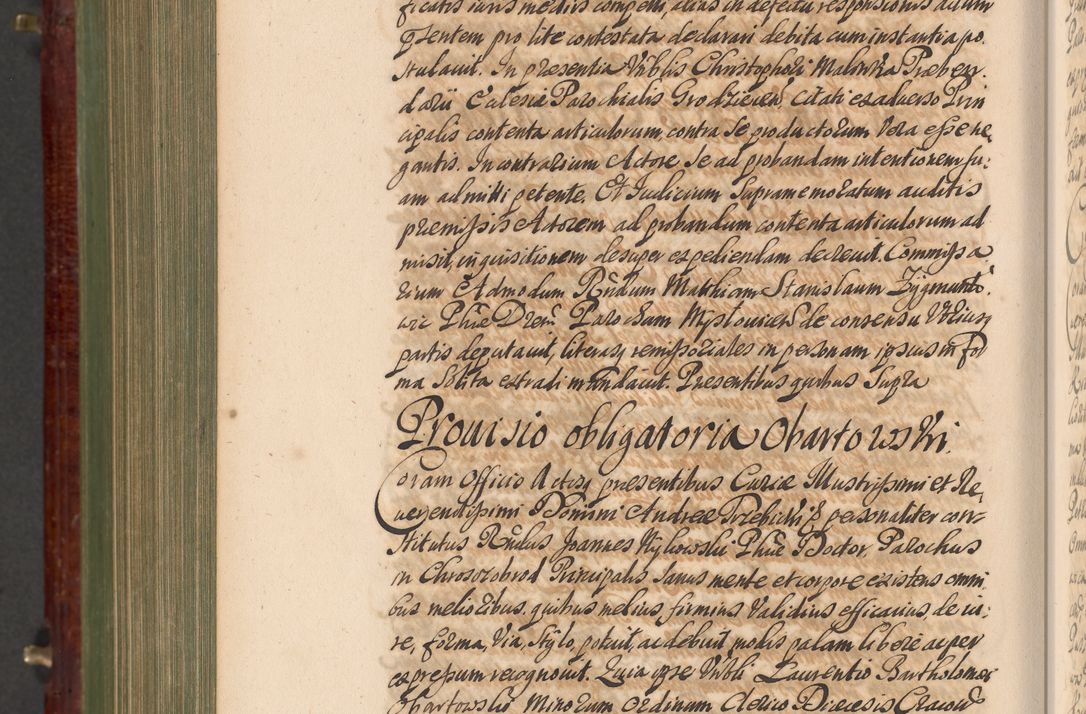 ficatis iuris mediis compelli, alias in defectu responsionis actum
qsentem pro lite contestata declarari debita cum instantia po.
stulauit. In presentia Vrblis Christophori Malinka Præben.
darii Ecclesiæ Parochialis Grodziecen, citati ex aduerso Prin
cipalis contenta articulorum contra se productorum Vera esse ne,
gantis. In contrarium Actore se ad probandam intentionem su:
am admitti petente. Et Iudicium supramemoratum auditis
premissis Actorem ad probandum contenta articulorum ad
misit, inquisitionem desuper expediendam decreuit. Commissa
rium Admodum Rndum Mathiam Stanislaum Zygmunto
wic Phiæ Parocham de consensu Vtriusq
partis deputauit, literasq remissoriales in personam ipsius in for
ma solita extradi mandauit. Presentibus quibus supra
Prouisio obligatoria Obartowski.
Coram Officio Actisq presentibus Curiæ Illustrissimi et Re,
uerendissimi Domini Andreæ Trzebicki personaliter con-
stitutus Rndus Joannes Phiæ Doctor, Parochus
in Chroszobrod Principalis sanus mente et corpore existens omni
bus melioribus, quibus melius firmius validius efficacius, de iu:
re, forma, Via, stylo, potuit, ac debuit, modis palam libere ac per
expressum recognouit. Quia ipse Vrbli Laurentio Bartholomæo
Obartowski Minorum Ordinum Clerico Diæcesis Cracou